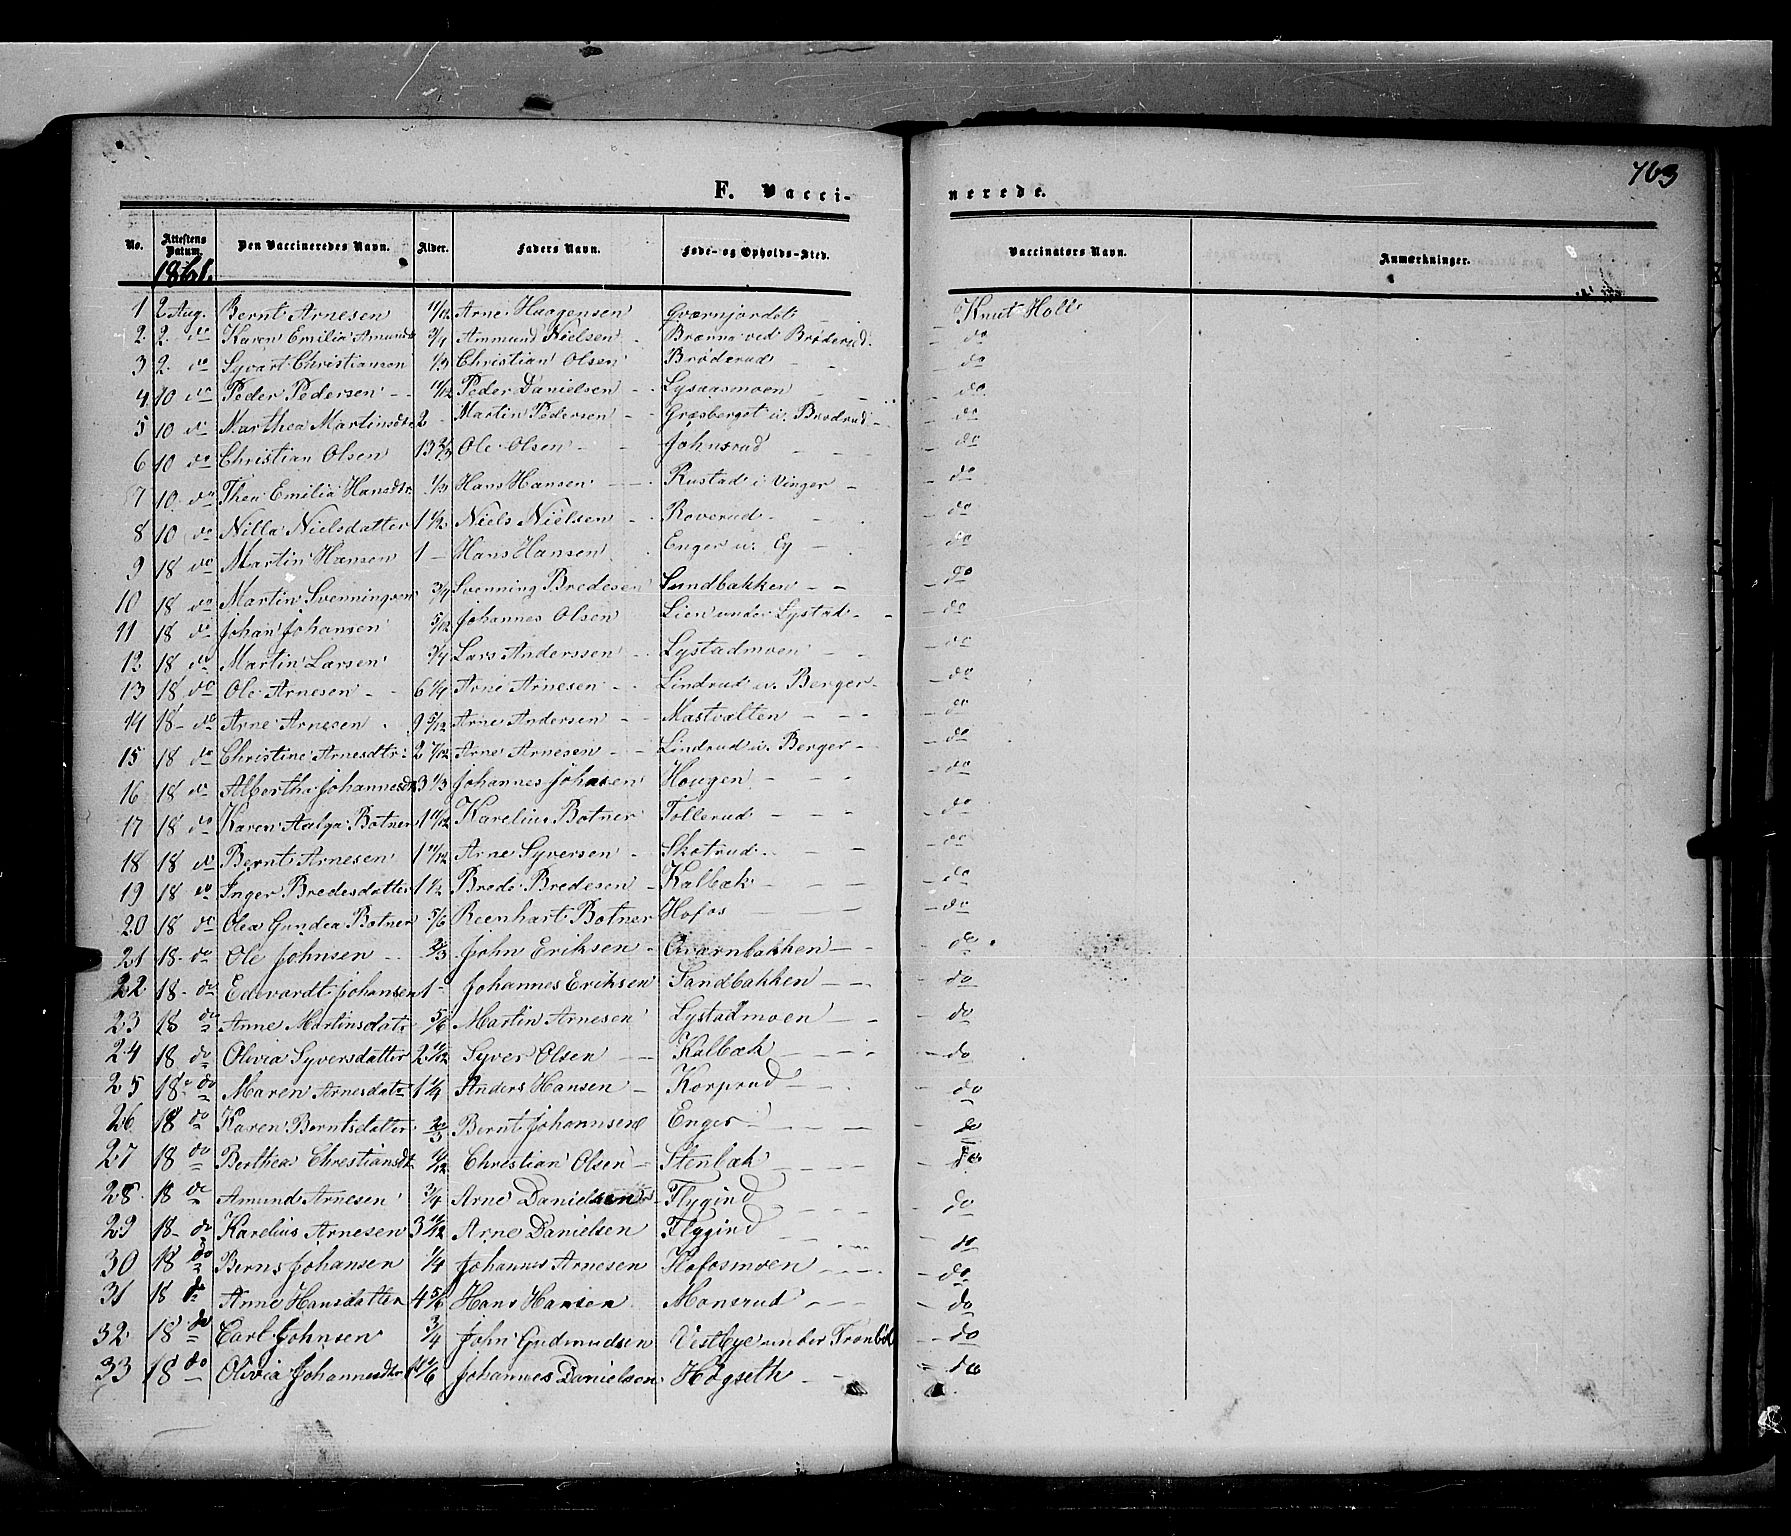 463
F. Vacci-
nerede.
No. Attestens Datum. Den Vaccineredes Navn. Alder. Faders Navn. Føde- og Opholds-Sted. Vaccinators Navn. Anmærkninger.
1861.
1 2 Aug. Bernt Arnesen 11/12 Arne Haagensen Qværnjordet Knut Holt
2 2 do Karen Emilia Amundsd 3/4 Ammund Nielsen Brænna ved Brøderud do
3 2 do Syvart Christiansen 1/3 Christian Olsen Brøderud do
4 10 do Peder Pedersen 11/12 Peder Danielsen Lysaasmoen do
5 10 do Marthea Martinsdtr 2 Martin Pedersen Græsberget u. Brøderud do
6 10 do Christian Olsen 13 2/3 Ole Olsen Johnsrud do
7 10 do Thea Emilia Hansdtr 1/3 Hans Hansen Rustad i Vinger do
8 10 do Nilla Nielsdatter 1 1/2 Niels Nielsen Roverud do
9 18 do Martin Hansen 1 Hans Hansen Enger u. Ey do
10 18 do Martin Svenningsen 3/4 Svenning Bredesen Sandbakken do
11 18 do Johan Johansen 5/12 Johannes Olsen Lien under Lystad do
12 18 do Martin Larsen 3/4 Lars Anderssen Lystadmoen do
13 18 do Ole Arnesen 6 1/4 Arne Arnesen Lindrud u. Berger do
14 18 do Arne Arnesen 9 5/12 Arne Andersen Mastvalten do
15 18 do Christine Arnesdtr 2 7/12 Arne Arnesen Lindrud u. Berger do
16 18 do Albertha Johannesdtr 3 1/3 Johannes Johnsen Hougen do
17 18 do Karen Aalga Botner 1 11/12 Karelius Botner Tollerud do
18 18 do Bernt Arnesen 1 11/12 Arne Syversen Skotrud do
19 18 do Inger Bredesdatter 1 1/2 Brede Bredesen Kalbæk do
20 18 do Olea Gundea Botner 5/6 Reenhart Botner Hofos do
21 18 do Ole Johnsen 2/3 John Eriksen Qværnbakken do
22 18 do Edevardt Johansen 1 Johannes Eriksen Sandbakken do
23 18 do Anne Martinsdatr 5/6 Martin Arnesen Lystadmoen do
24 18 do Olivia Syversdatter 2 11/12 Syver Olsen Kalbæk do
25 18 do Maren Arnesdatr 1 1/4 Anders Hansen Korprud do
26 18 do Karen Berntsdatter 2/3 Bernt Johannsen Enger do
27 18 do Berthea Christiansdt Christian Olsen Stenbæk do
28 18 do Amund Arnesen 3/4 Arne Danielsen Flygind do
29 18 do Karelius Arnesen 3 11/12 Arne Danielsen Flygind do
30 18 do Berns Johansen 1/4 Johannes Arnesen Hofosmoen do
31 18 do Anne Hansdatter 4 5/6 Hans Hansen Monsrud do
32 18 do Carl Johnsen 3/4 John Gudmudsen Vestbye under Trønbøl do
33 18 do Olivia Johannesdtr Johannes Danielsen Høgseth do